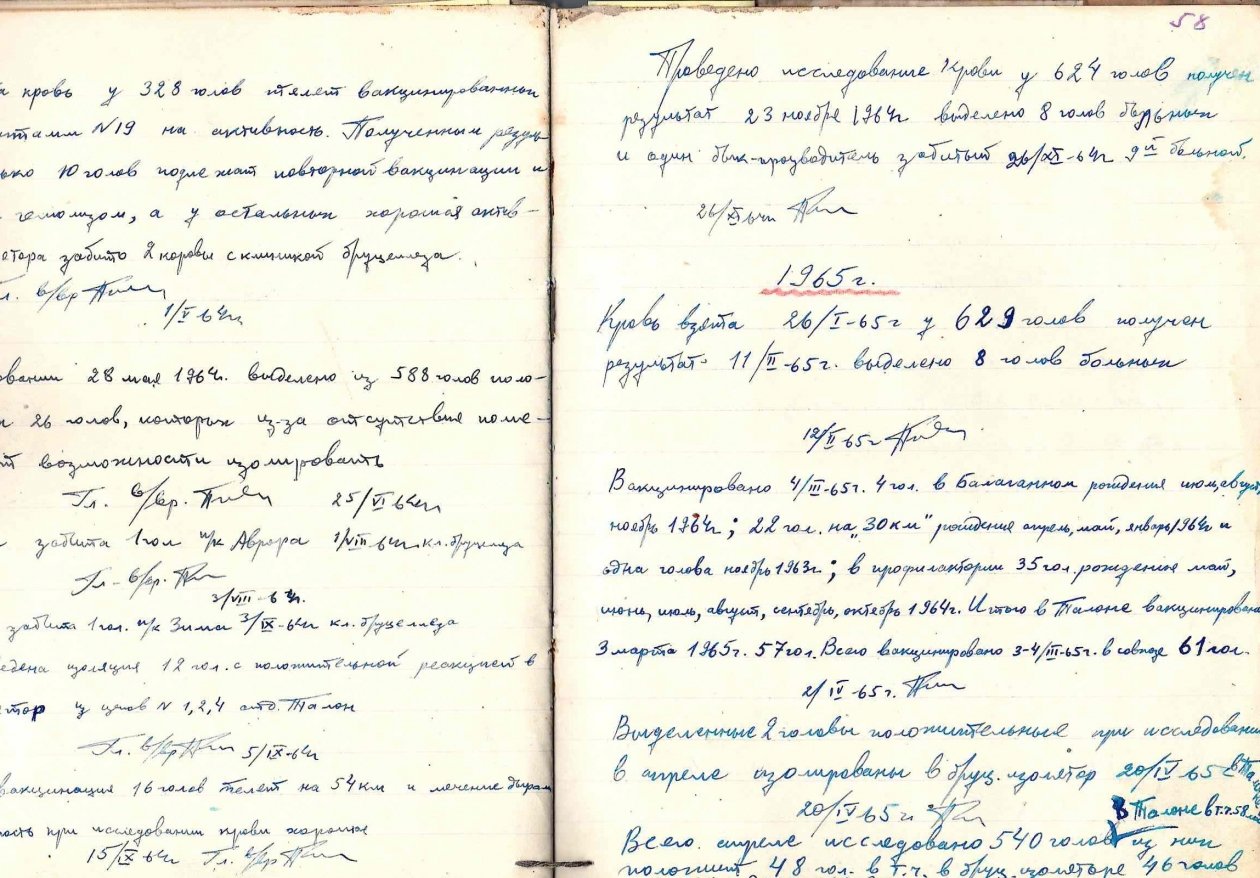 кровь у 328 голов телят вакцинированных
штамм N19 на активность. Полученным резуль
10 голов подлежат повторной вакцинации и
гемолизом, а у остальных хорошая актив-
забито 2 коровы с клиникой бруцелеза.
Гл. в/вр
1/V-64г
28 мая 1964г. выделено из 588 голов поло-
26 голов, которых из-за отсутствия поме-
возможности изолировать
Гл. в/вр. 25/VI-64г
забита 1 гол и/к Аврора 1/VIII-64г кл. бруцелеза
Гл. в/вр.
3/VIII-64г.
забита 1 гол. и/к Зима 3/IX-64г кл. бруцелеза
изоляция 12 гол. с положительной реакцией в
из цехов N 1,2,4 отд. Талон
Гл. в/вр 5/IX-64г
вакцинация 16 голов телят на 54 км и лечение
при исследовании крови хорошие
15/IX-64г Гл. в/вр
58
Проведено исследование крови у 624 голов получен
результат 23 ноября 1964г выделено 8 голов больных
и один бык-производитель забитый 26/XI-64г 9й больной.
26/XI-64г
1965г.
Кровь взята 26/I-65г у 629 голов получен
результат 11/II-65г. выделено 8 голов больных
12/II-65г
Вакцинировано 4/III-65г. 4 гол. в Балаганном рождения июль, август
ноябрь 1964г; 22 гол. на „30 км" рождение апрель, май, январь 1964г и
одна голова ноябрь 1963г; в профилактории 35 гол. рождение май,
июнь, июль, август, сентябрь, октябрь 1964г. Итого в Талоне вакцинировано
3 марта 1965г. 57 гол. Всего вакцинировано 3-4/III-65г. в совхозе 61 гол.
2/IV-65г.
Выделенные 2 головы положительные при исследовании
в апреле изолированы в бруц. изолятор 20/IV 65г
20/IV 65г
В Талоне в т.ч. 58
Всего апреле исследовано 540 голов из них
положит 48 гол. в т.ч. в бруц. изоляторе 46 голов